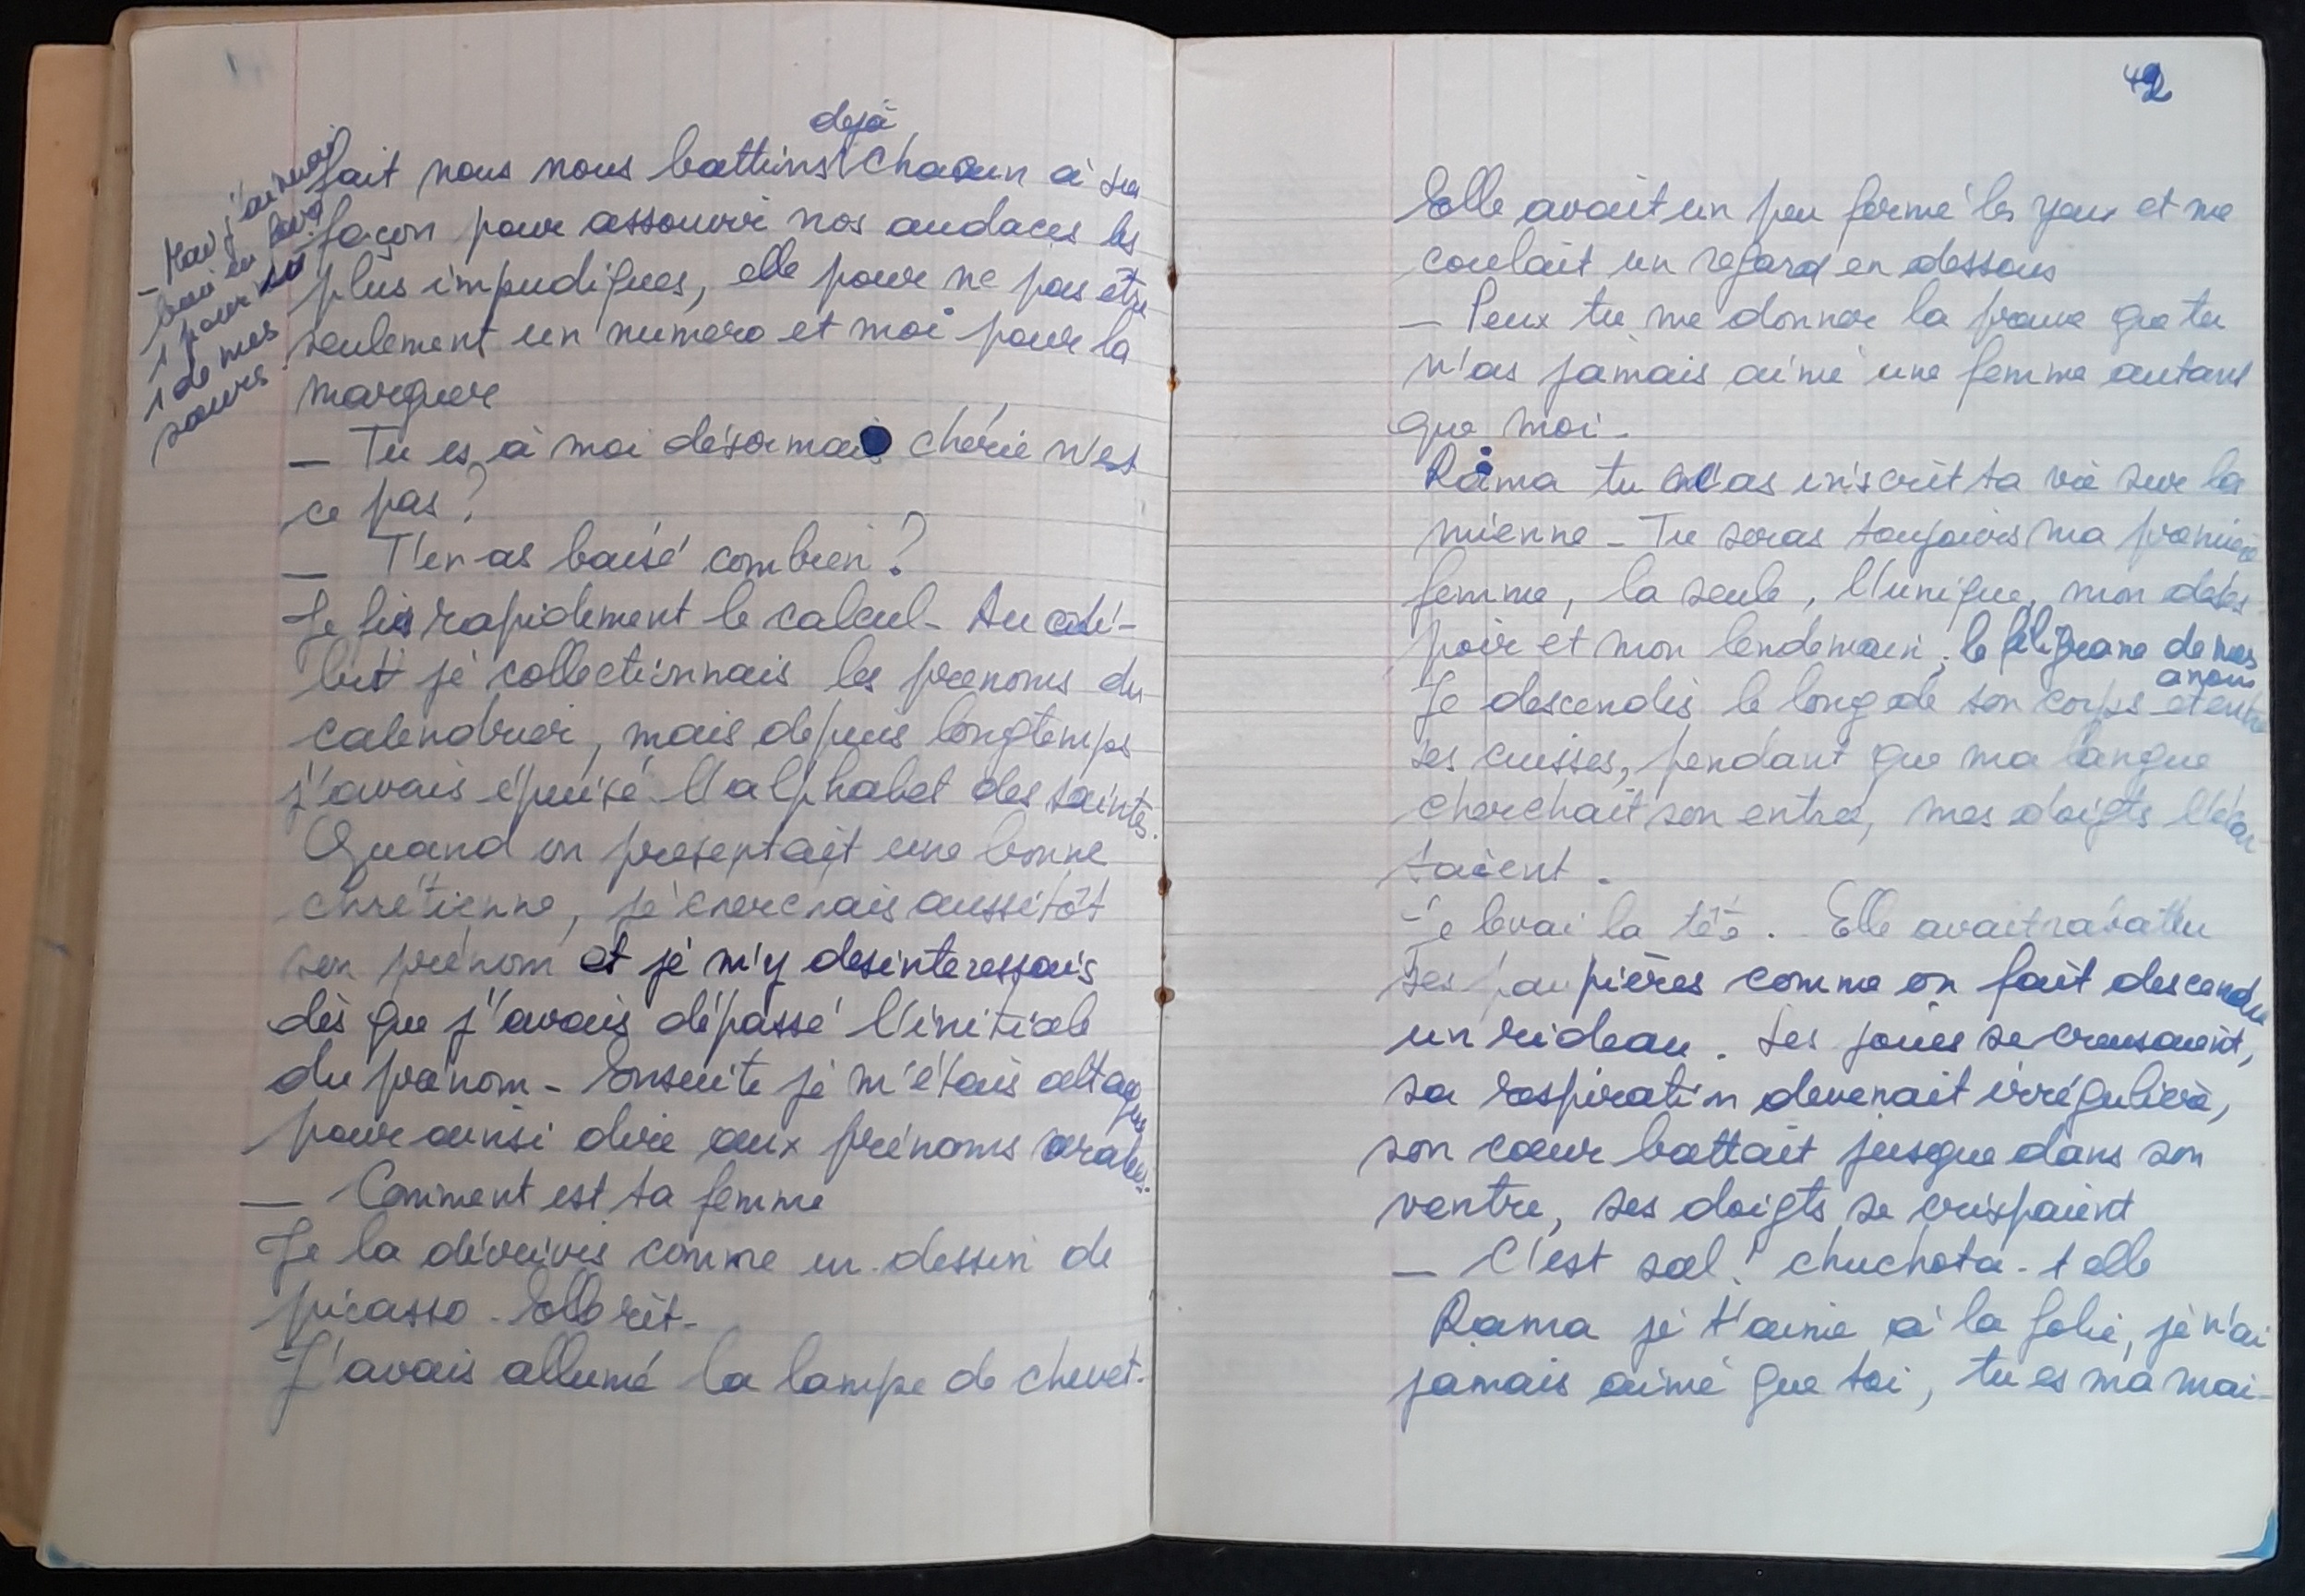 déjà
fait nous nous battions chacun à sa
façon pour assouvir nos audaces les
plus impudiques, elle pour ne pas être
seulement un numero et moi pour la
marquer
— Tu es à moi désormais chérie n'est
ce pas ?
— T'en as baisé combien ?
Je fis rapidement le calcul - Au dé-
but je collectionnais les prenoms du
calendrier, mais depuis longtemps
j'avais épuisé l'alphabet des saintes.
Quand on presentait une bonne
chrétienne, je cherchais aussitôt
son prénom et je m'y desinteressais
dès que j'avais dépassé l'initiale
du prénom - Ensuite je m'étais attaqué
pour ainsi dire aux prénoms arabes.
— Comment est ta femme
Je la décrivis comme un dessin de
picasso - Elle rit -
J'avais allumé la lampe de chevet -
- Mais j'ai
1 pour
1 de mes
soeurs
42
Elle avait un peu fermé les yeux et me
coulait un regard en dessous
— Peux tu me donner la preuve que tu
n'as jamais aimé une femme autant
que moi -
Rama tu as inscrit ta vie sur la
mienne - Tu seras toujours ma première
femme, la seule, l'unique, mon déses
poir et mon lendemain, le filigrane de mes
Je descendis le long de son corps et entre
ses cuisses, pendant que ma langue
cherchait son entrée, mes doigts l'écar
taient .
Je levai la tête . Elle avait rabattu
ses paupières comme on fait descendre
un rideau . Ses joues se creusaient,
sa respiration devenait irrégulière,
son cœur battait jusque dans son
ventre, ses doigts se crispaient
— C'est sal ! chuchota - t elle
Rama je t'aime à la folie, je n'ai
jamais aimé que toi, tu es ma mai-